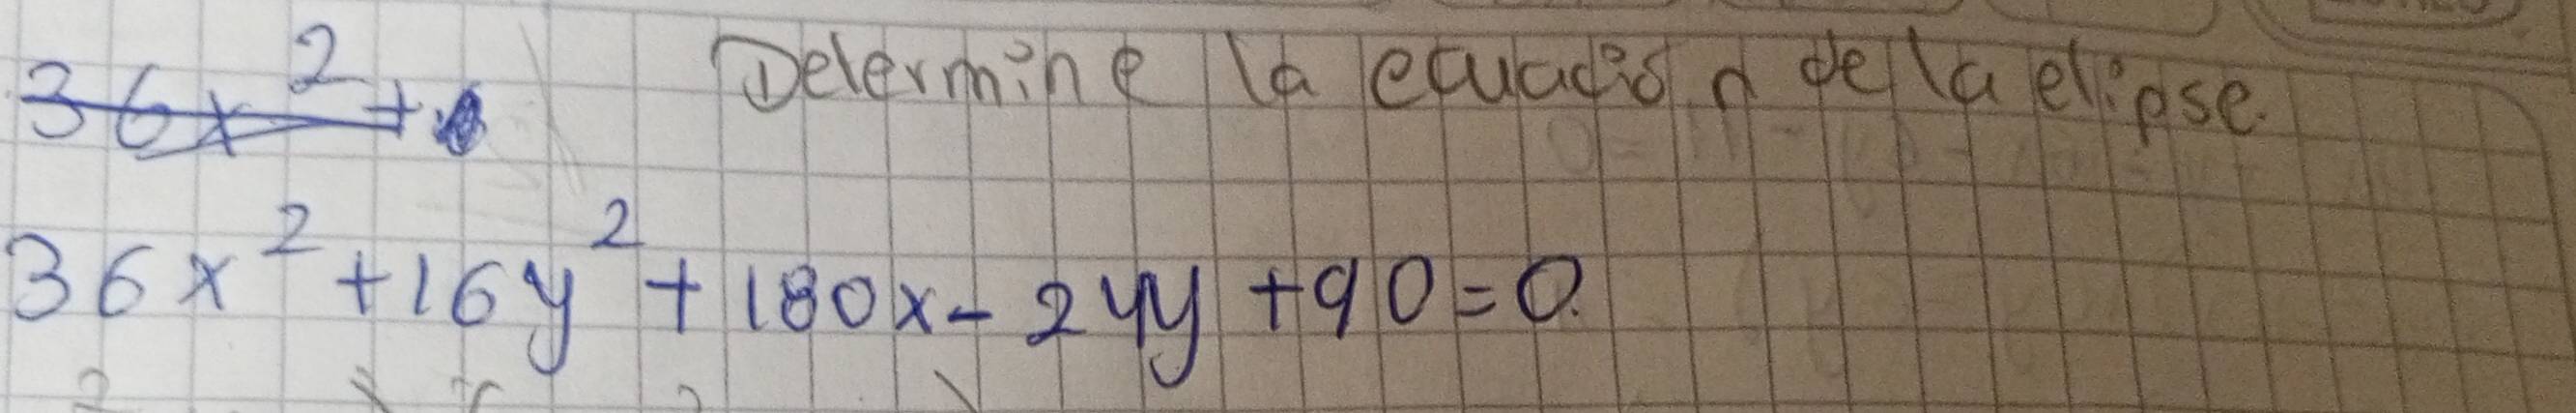 Determine la ecuación de la elipse.
36x² +
36x² + 16y² + 180x - 24y + 90 = 0.